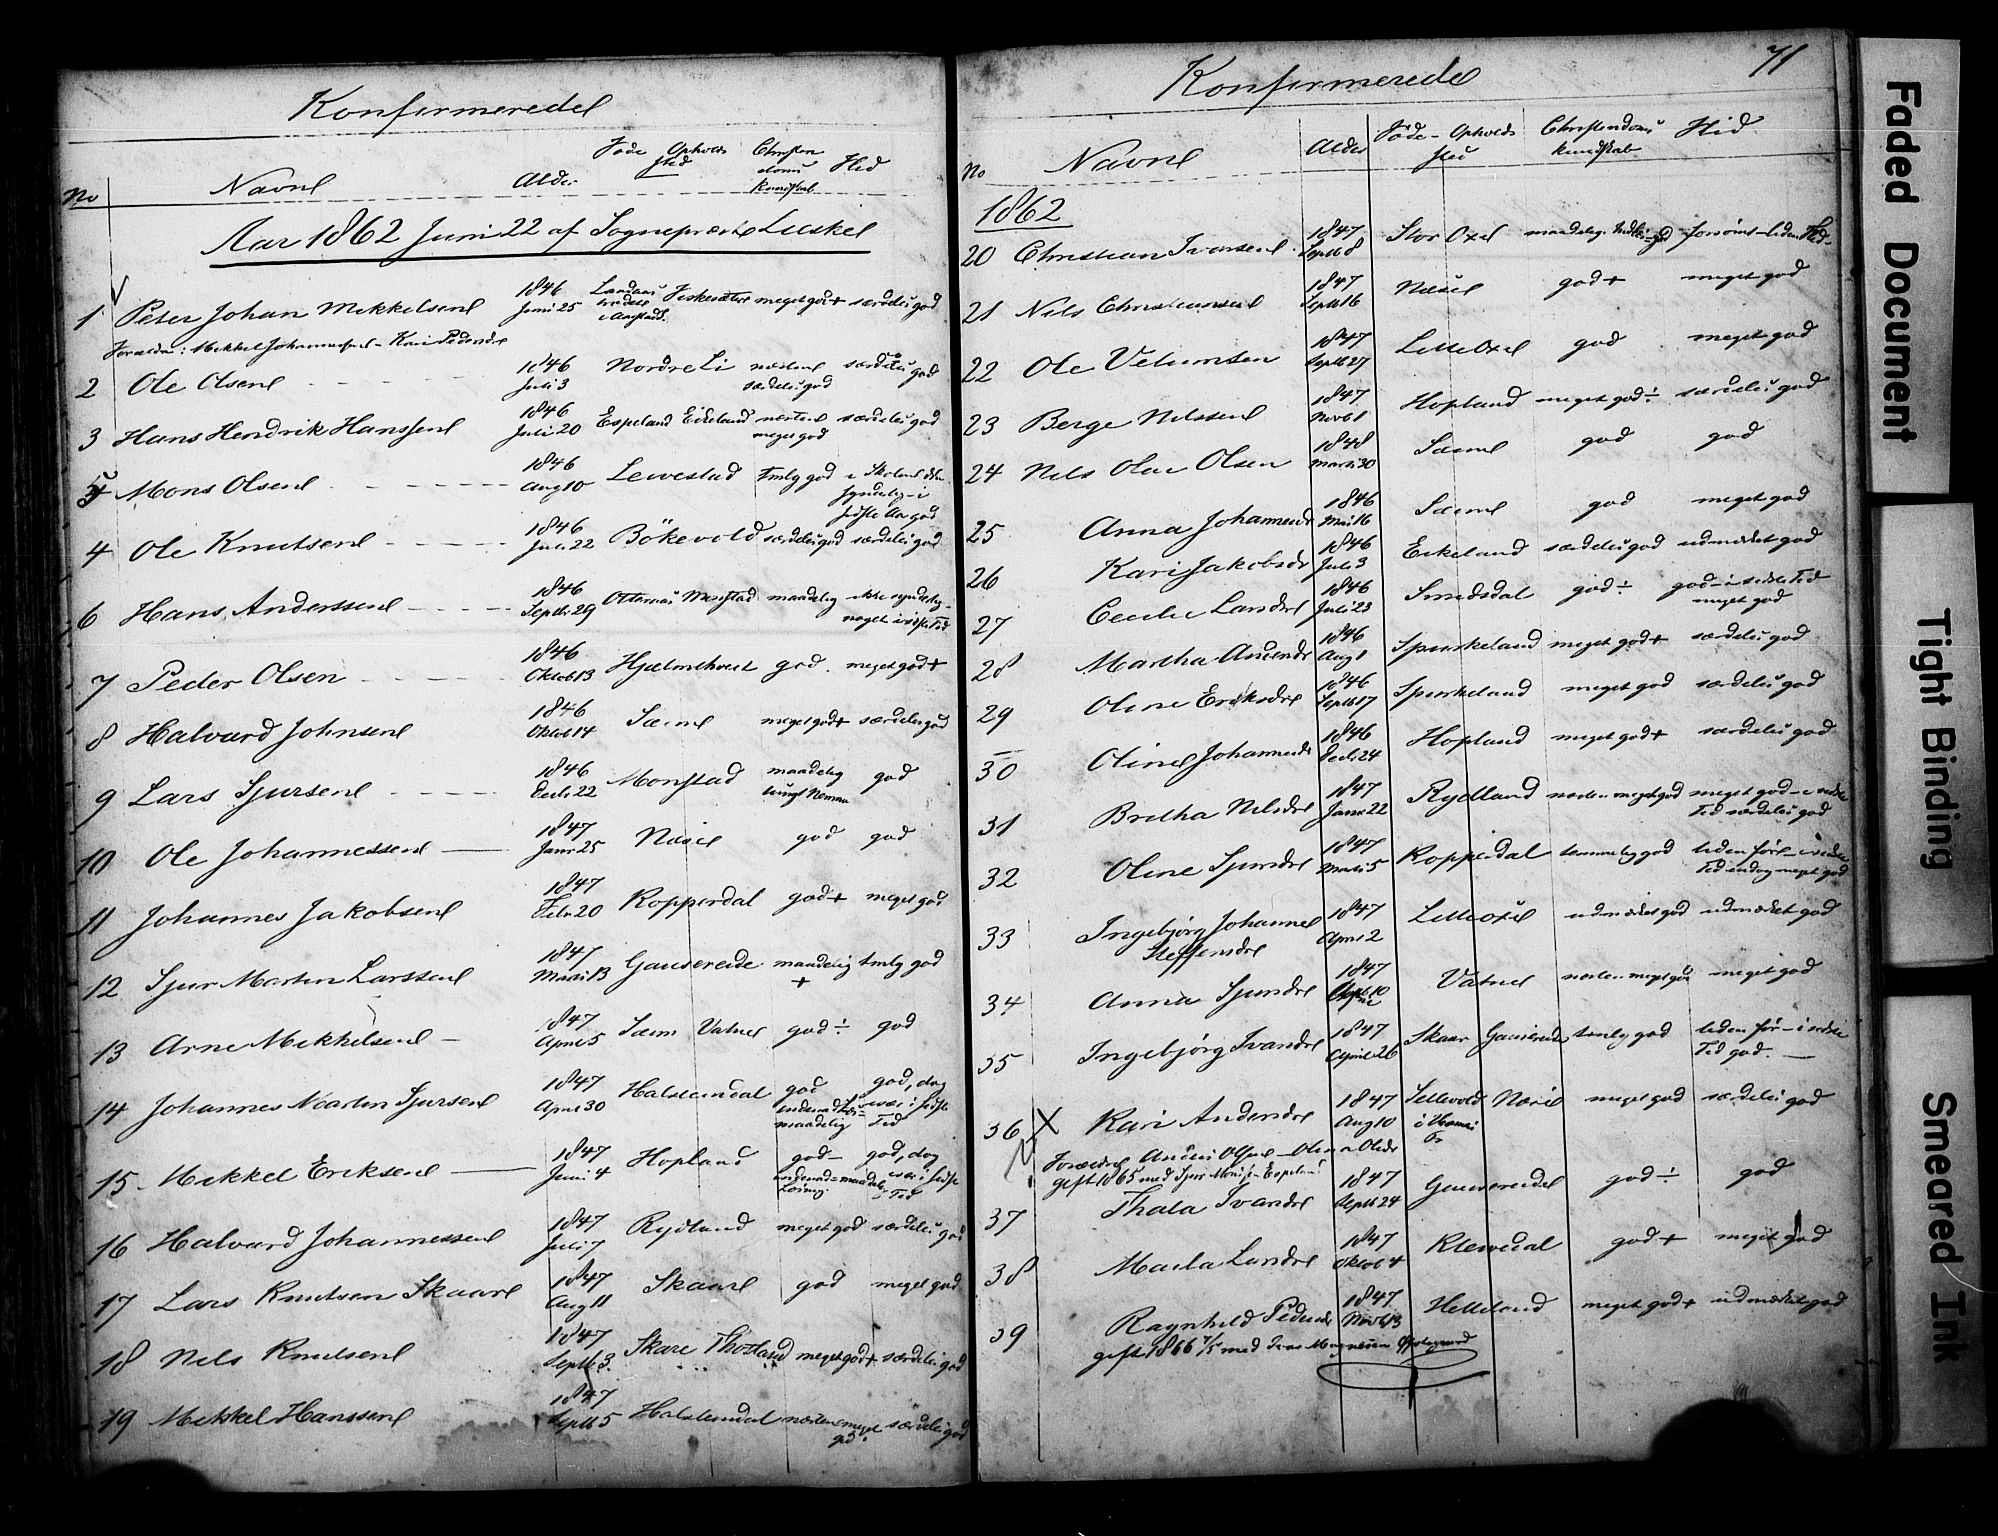 Konfirmerede
No Navne Alder Föde Opholds sted Christendoms kundskab Flid
Aar 1862 Juni 22 af Sognepræst
1 Peter Johan Mikkelsen 1846 Juni 25 meget god+ særdeles god
Forældre: Mikkel Johannessen - Kari Pedersdr
2 Ole Olsen 1846 Juli 3 Nordre Li næsten særdeles god særdeles god
3 Hans Hendrik Hanssen 1846 Juli 20 Espeland Eikeland næsten meget god særdeles god
5 Mons Olsen 1846 Aug 10 Levestad tmlg god i Skolen ikke synderlig i sidste Aar god
4 Ole Knutsen 1846 Juli 22 Bökevold særdeles god særdeles god
6 Hans Anderssen 1846 Septbr 29 Mongstad maadelig ikke synderlig noget i sidste Tid
7 Peder Olsen 1846 Oktob 13 Hjelmtveit god meget god+
8 Halvard Johnsen 1846 Oktob 14 Sæim meget god+ særdeles god
9 Lars Sjursen 1846 Decbr 22 Monstad maadelig tungt Nemme god
10 Ole Johannessen 1847 Janr 25 Næsse god god
11 Johannes Jakobsen 1847 Febr 20 Kopperdal god+ meget god
12 Sjur Martin Larssen 1847 Marts 13 Gausereide maadelig + tmlg god
13 Arne Mikkelsen 1847 April 5 Sæim Vatne god÷ god
14 Johannes Martin Sjursen 1847 April 30 Halsteindal god indenad Læs. maadelig god, dog især i sidste Tid
15 Mikkel Eriksen 1847 Juni 4 Hopland god- indenad Læsning maadel. god, dog især i sidste Tid
16 Halvard Johannessen 1847 Juli 7 Rydland meget god særdeles god
17 Lars Knutsen Skaare 1847 Aug 11 Skaare god meget god
18 Nils Knutsen 1847 Septb 3 Skare meget god+ særdeles god
19 Mikkel Hanssen 1847 Septb 5 Halsteindal næsten meget god særdeles god
71
Konfirmerede
No Navne Alder Föde- Opholds sted Christendoms kundskab Flid
1862
20 Christian Ivarsen 1847 Septb 8 Stor Oxe forsömt - liden Flid
21 Nils Christiansen 1847 Septb 16 Næse god+ meget god
22 Ole Velumsen 1847 Septb 27 Lille Oxe god meget god
23 Berge Nilssen 1847 Novb 1 Hopland meget god÷ særdeles god
24 Nils Olai Olsen 1848 Marts 30 Sæim god god
25 Anna Johannesdr 1846 Mai 16 Sæim god meget god
26 Kari Jakobsdr 1846 Juli 3 Eikeland særdeles god udmærket god
27 Cecilie Larsdr 1846 Juli 23 Smedsdal god÷ god - i sidste Tid meget god
28 Martha Andersdr 1846 Aug 1 Spurkeland meget god+ særdeles god
29 Oline Eriksdr 1846 Septb 17 Spurkeland meget god særdeles god
30 Oline Johannesdr 1846 Decbr 24 Hopland meget god+ særdeles god
31 Britha Nilsdr 1847 Janr 22 Rydland næsten meget god meget god - i sidste Tid særdeles god
32 Oline Sjursdr 1847 Marts 5 Kopperdal temmelig god liden för - i sidste Tid endog meget god
33 Ingebjörg Johanne Steffensdr 1847 April 2 Lille Oxe udmærket god udmærket god
34 Anna Sjursdr 1847 April 10 Vatne næsten meget god meget god
35 Ingebjörg Ivarsdr 1847 April 26 Skaar Gausereide tmlg god liden för - i sidste Tid god.
36 X Kari Andersdr 1847 Aug 10 Sellevold i Næsse meget god særdeles god
Forældre Anders Olsen - Olina Olsdr
gift 1865 med Sjur Monsen Espeland
37 Thala Ivarsdr 1847 Septb 24 Gausereide god÷ god
38 Marta Larsdr 1847 Oktob 4 Klevedal god+ meget god
39 Ragnhild Pedersdr 1847 Novb 13 Helleland meget god+ udmærket god
gift 1866 med Ivar Magnessen
Faded Document
Tight Binding
Smeared Ink